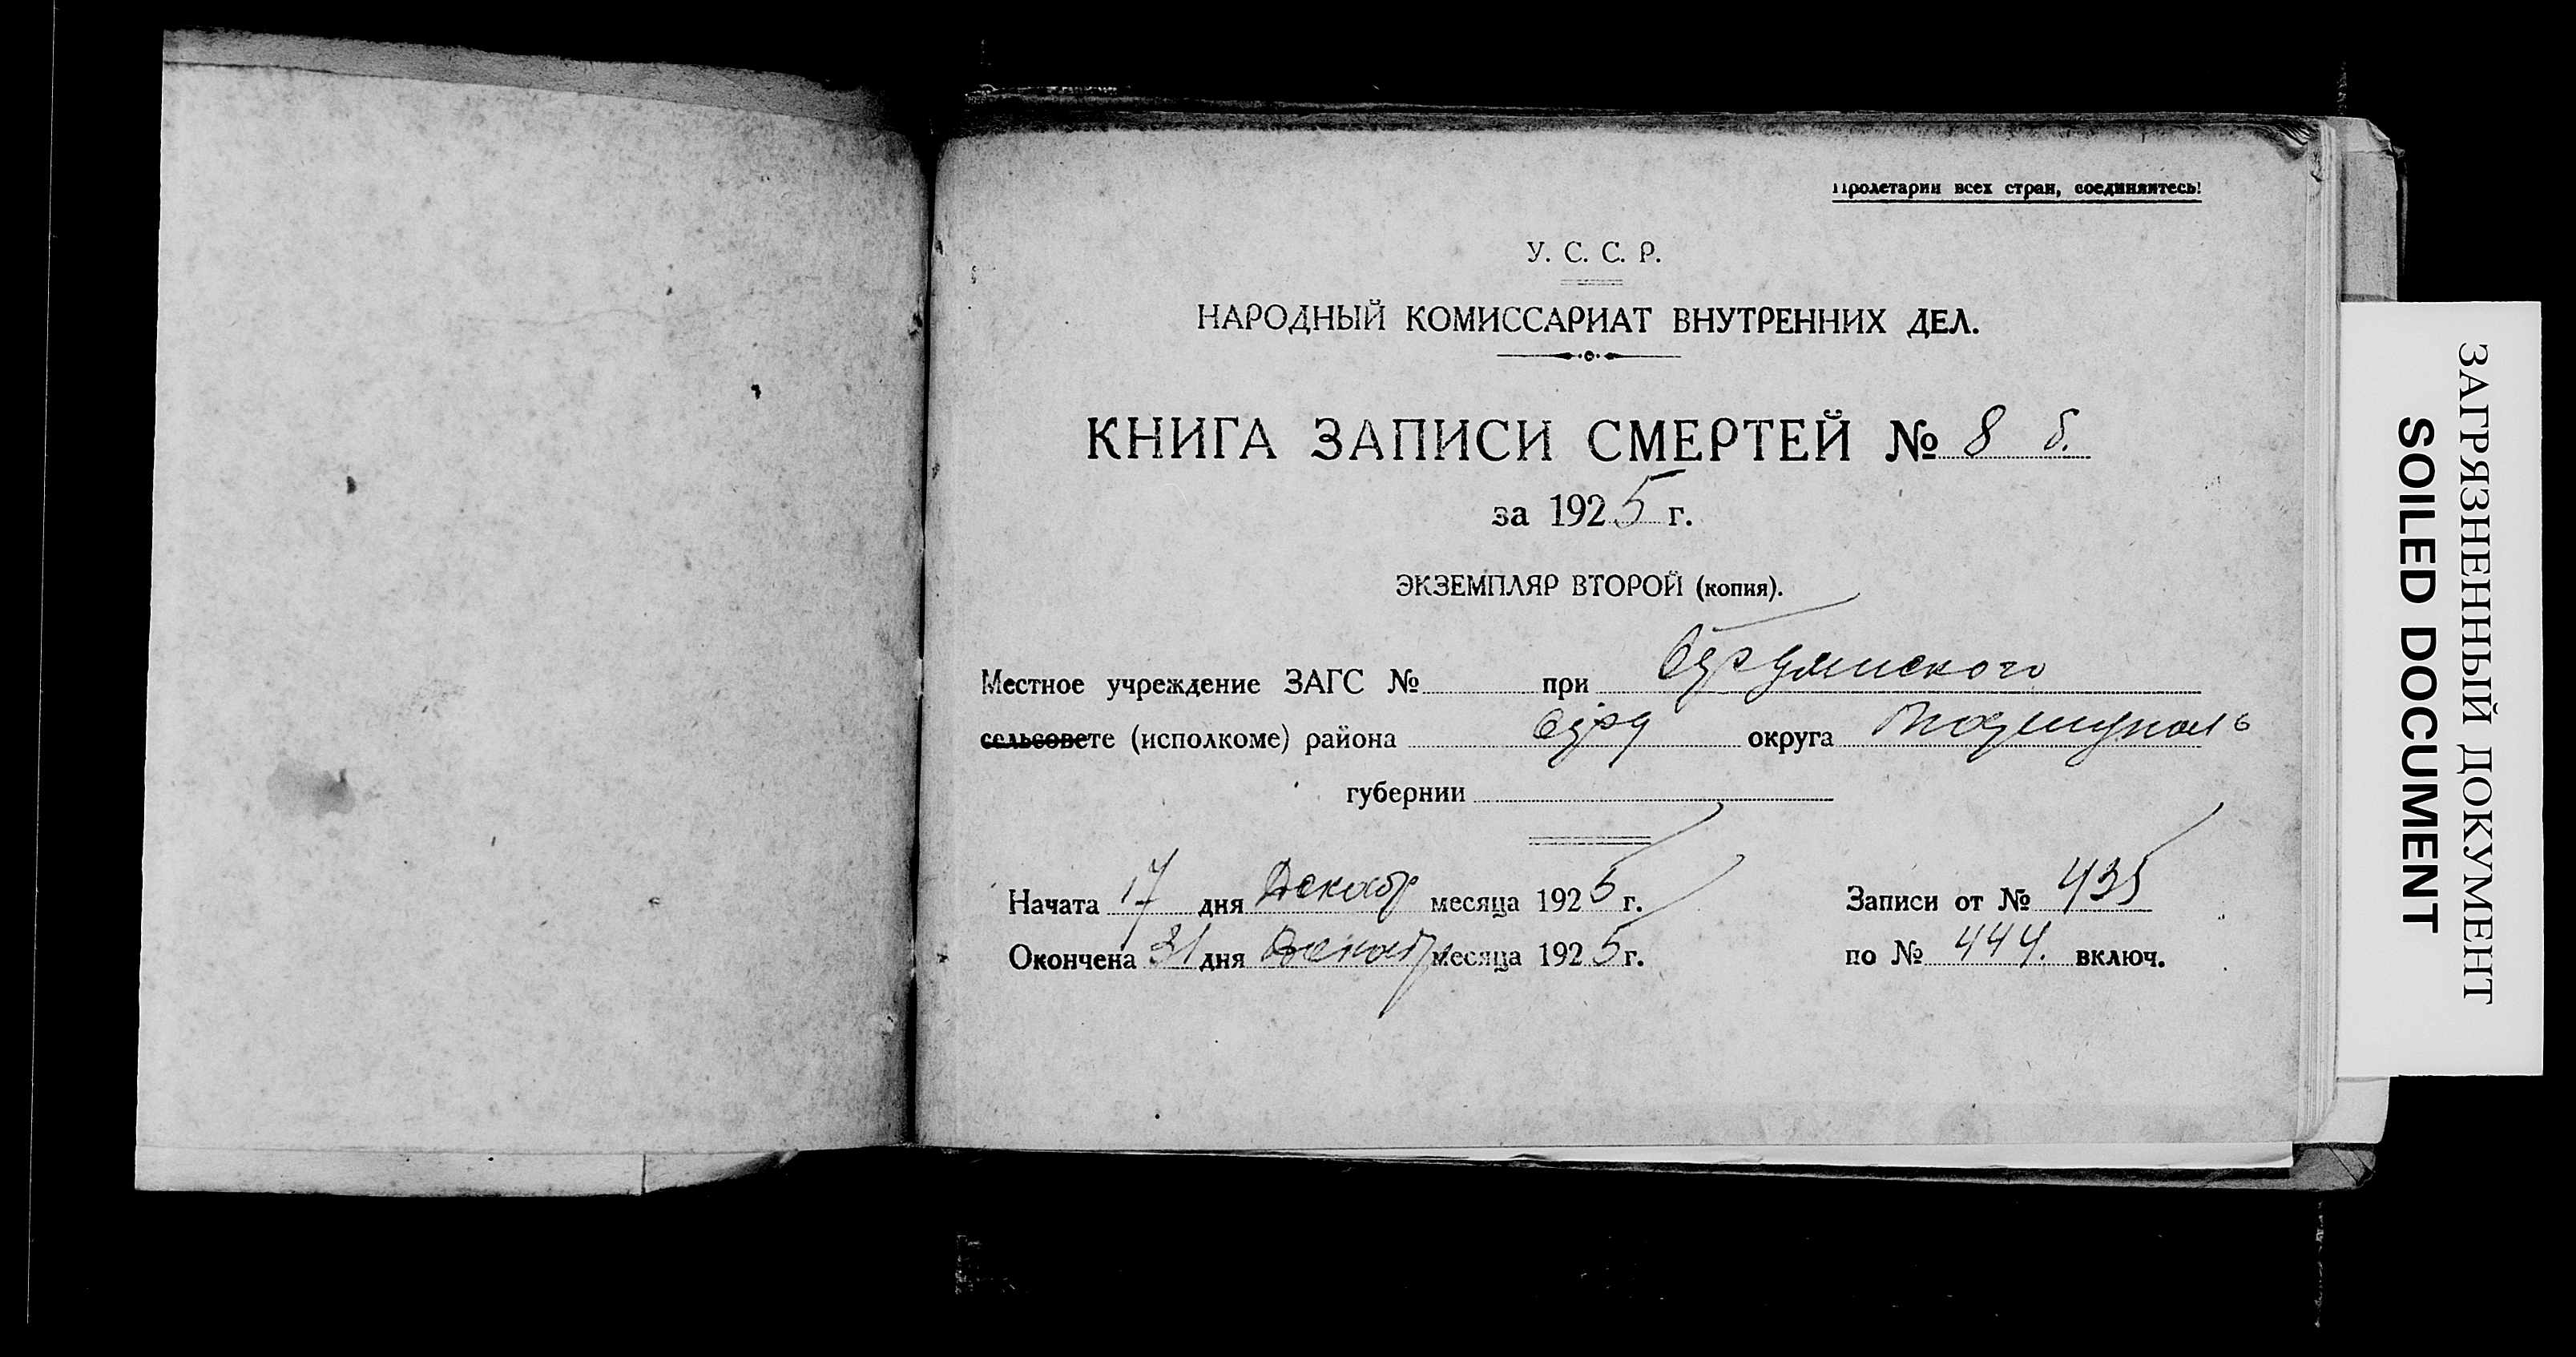 Пролетарии всех стран, соединяйтесь!
У. С. С. Р.
НАРОДНЫЙ КОМИССАРИАТ ВНУТРЕННИХ ДЕЛ.
КНИГА ЗАПИСИ СМЕРТЕЙ № 8 б.
за 1925 г.
ЭКЗЕМПЛЯР ВТОРОЙ (копия).
Местное учреждение ЗАГС № при
сельсовете (исполкоме) района округа
губернии
Начата 17 дня Декабр месяца 1925 г. Записи от № 435
Окончена 31 дня Декабр месяца 1925 г. по № 444. включ.
ЗАГРЯЗНЕННЫЙ ДОКУМЕНТ
SOILED DOCUMENT